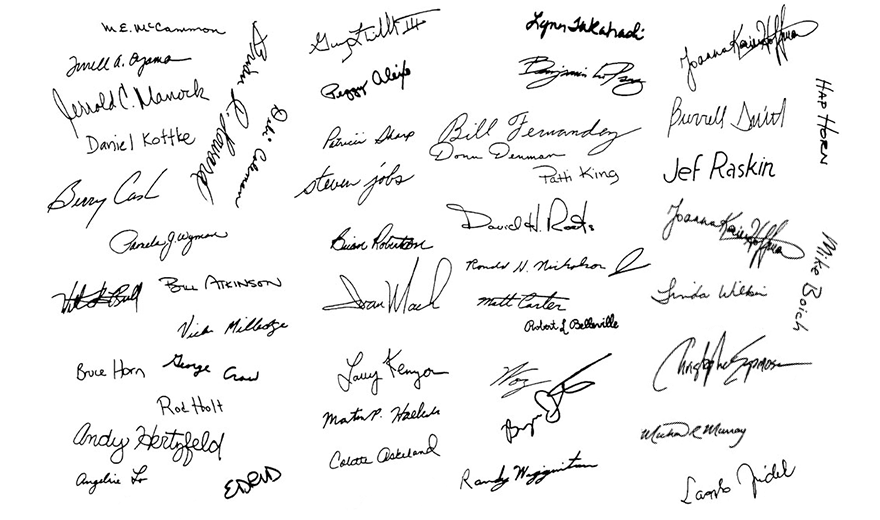 M.E. McCammon
Terrell A. Oyama
Jerrold C. Manock
Daniel Kottke
Berry Cash
Pamela J. Wyman
Bill Atkinson
Vicki Milledge
Bruce Horn
George Crow
Rod Holt
Andy Hertzfeld
Angeline Lo
Brian R. Howard
Peggy Alexio
Patricia Sharp
steven jobs
Brian Robertson
Larry Kenyon
Martin P. Haeberli
Colette Askeland
Lynn Takahashi
Benjamin
Bill Fernandez
Donn Denman
Patti King
David H. Roots
Ronald H. Nicholson
Matt Carter
Robert L Belleville
Woz
Randy Wigginton
Joanna Karine Hoffman
Burrell Smith
Jef Raskin
Joanna Karine Hoffman
Linda Wilkin
Christopher Espinosa
Michael R Murray
Laszlo Zidek
Hap Horn
Mike Boich